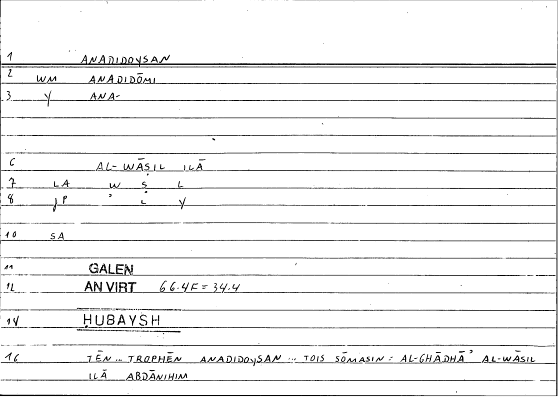 1 ANADIDOYSAN
2 WM ANADIDŌMI
3 Y ANA-
6 AL-WĀṢIL ILĀ
7 LA W Ṣ L
8 JP ʾ L Y
10 SA
11 GALEN
12 AN VIRT 66.4F=34.4
14 ḤUBAYSH
16 TĒN... TROPHĒN ANADIDOYSAN... TOIS SŌMASIN = AL-GHĀDHĀʾ AL-WĀṢIL
ILĀ ABDĀNIHIM